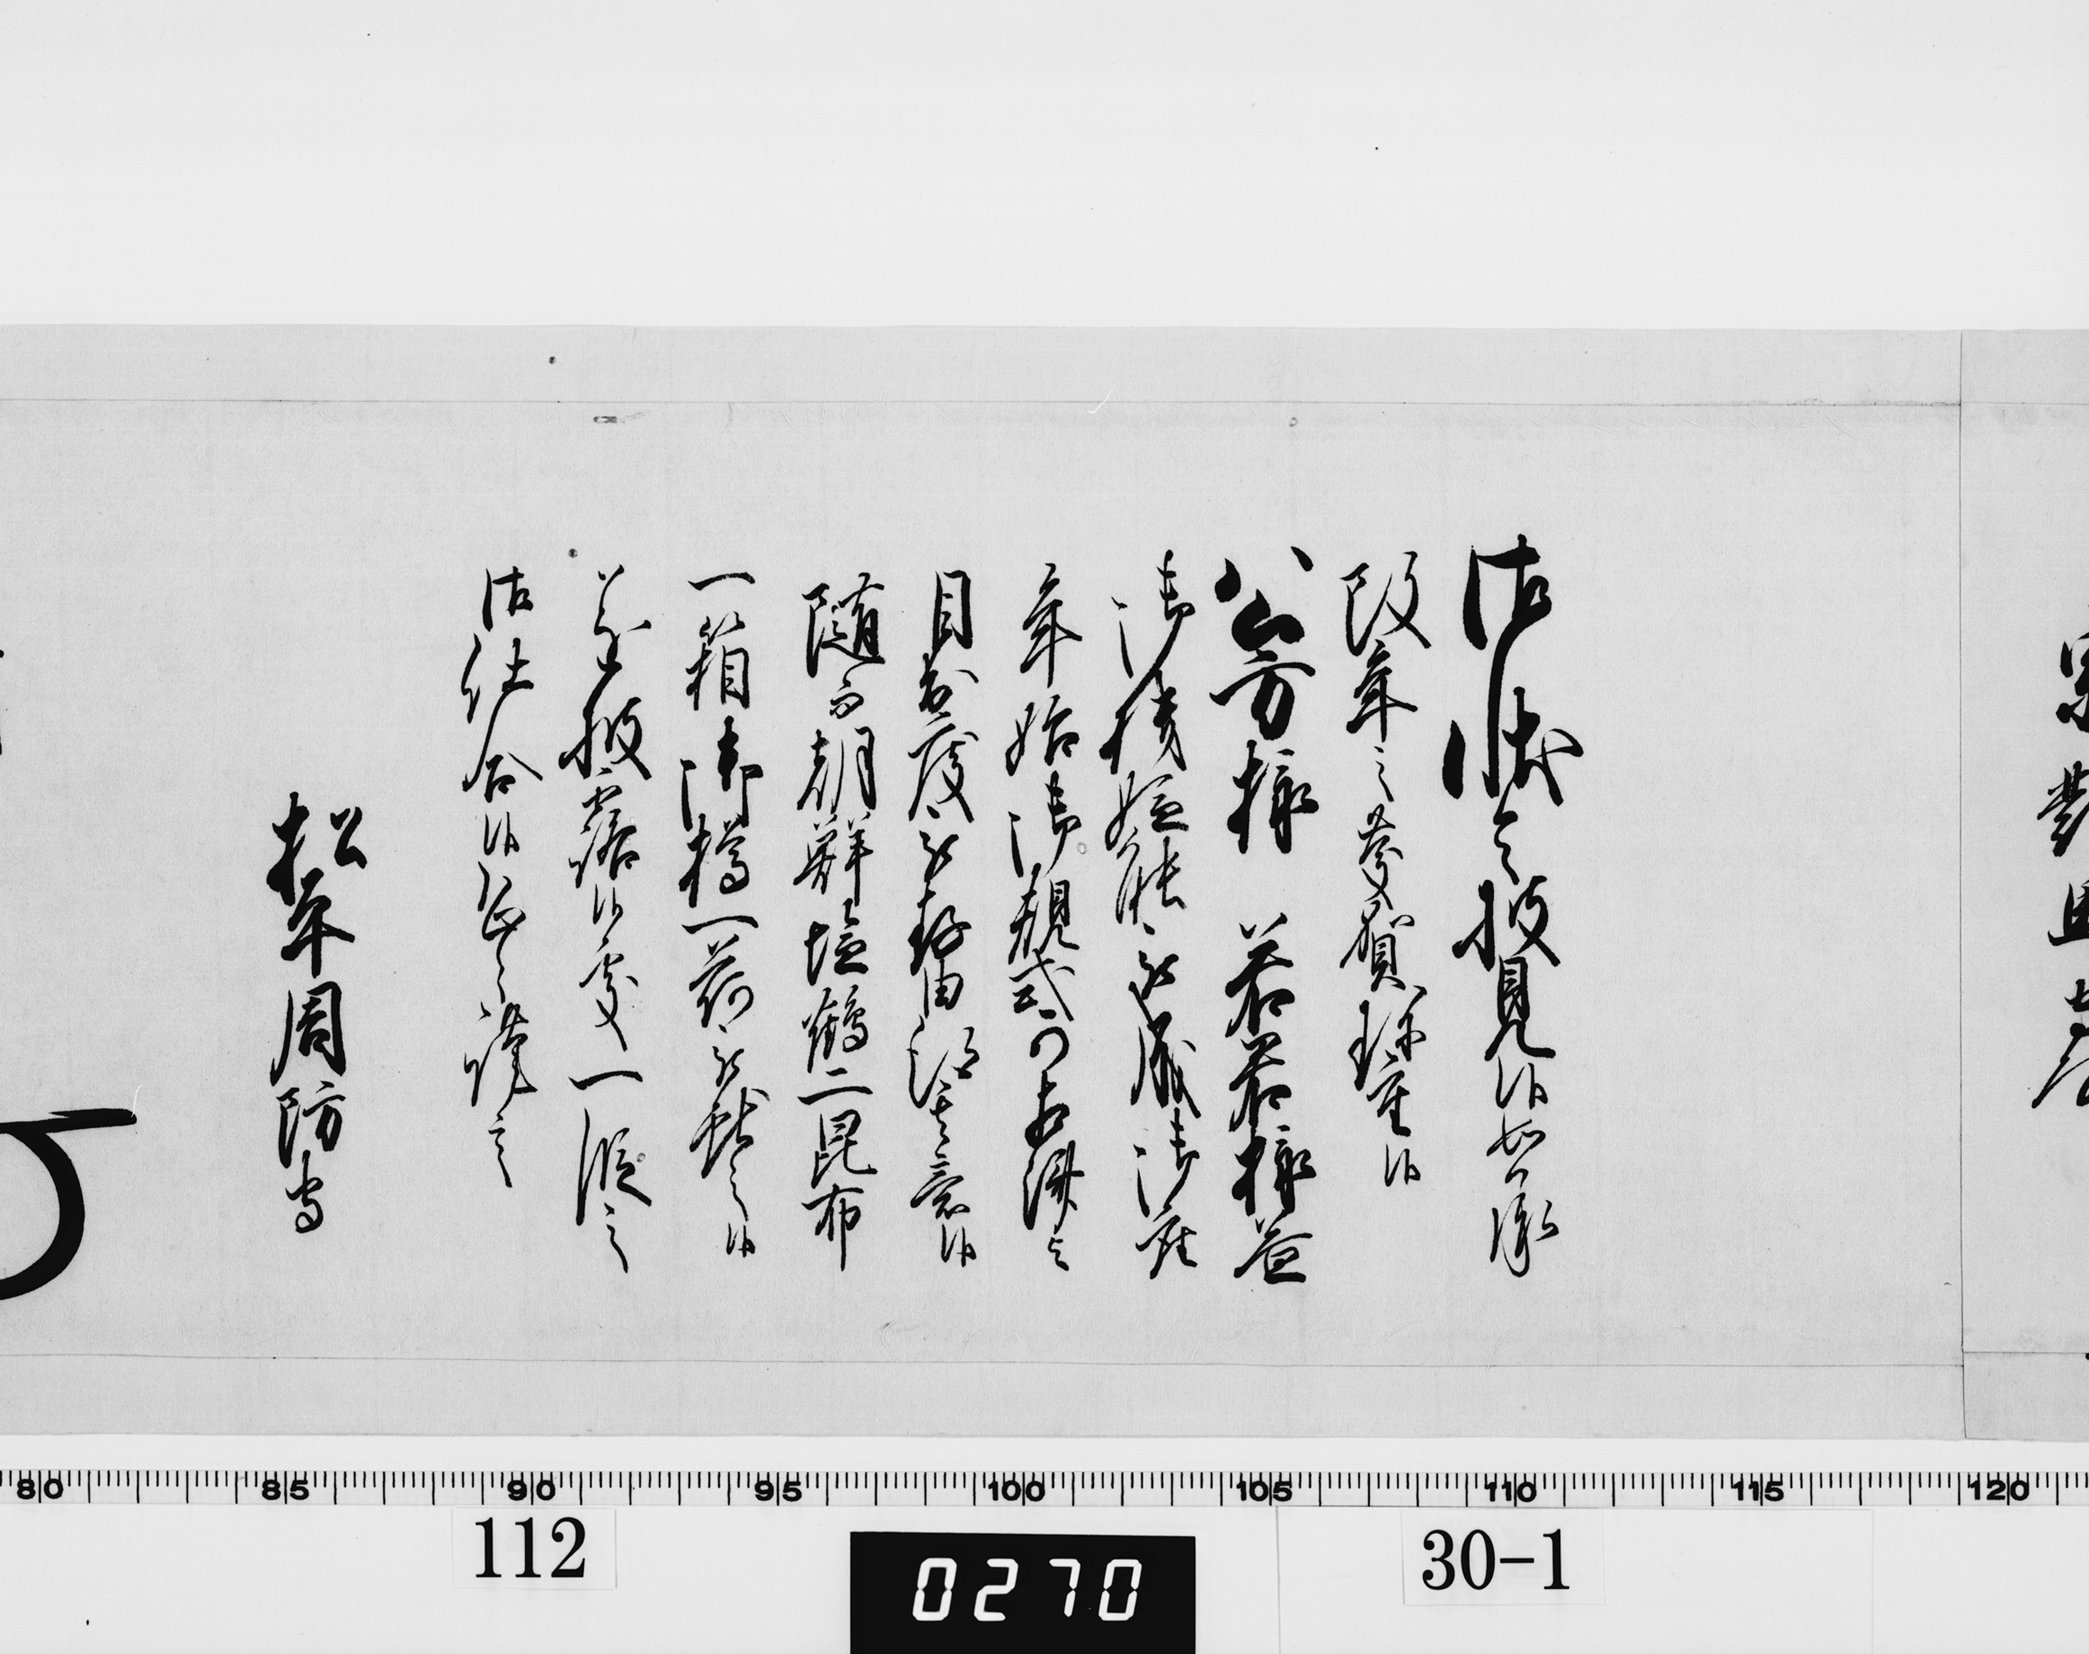 宗對馬守
御状令披見候如承
改年之慶賀珍重候
公方様 若君様益
御機嫌能被成御座
年始御規式可相済与
目出度被存由得其意候
随而朝鮮塩鶴二昆布
一箱御樽一荷被献之候
遂披露候処一段之
御仕合候恐々謹言
松平周防守
80 85 90 95 100 105 110 115 120
112
0270
30-1